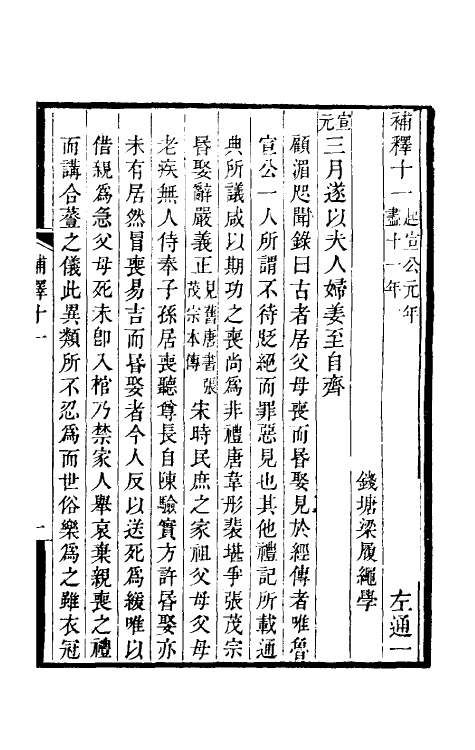 補釋十一 起宣公元年盡十一年 左通一
錢塘梁履繩學
宣元三月遂以夫人婦姜至自齊
顧湄咫聞錄曰古者居父母喪而昏娶見於經傳者唯魯
宣公一人所謂不待貶絕而罪惡見也其他禮記所載通
典所議咸以期功之喪尚爲非禮唐韋彤裴堪爭張茂宗
昏娶辭嚴義正見舊唐書張茂宗本傳宋時民庶之家祖父母父母
老疾無人侍奉子孫居喪聽尊長自陳驗實方許昏娶亦
未有居然冒喪易吉而昏娶者今人反以送死爲緩唯以
借親爲急父母死未卽入棺乃禁家人舉哀棄親喪之禮
而講合䇹之儀此異類所不忍爲而世俗樂爲之雖衣冠
補釋十一
一